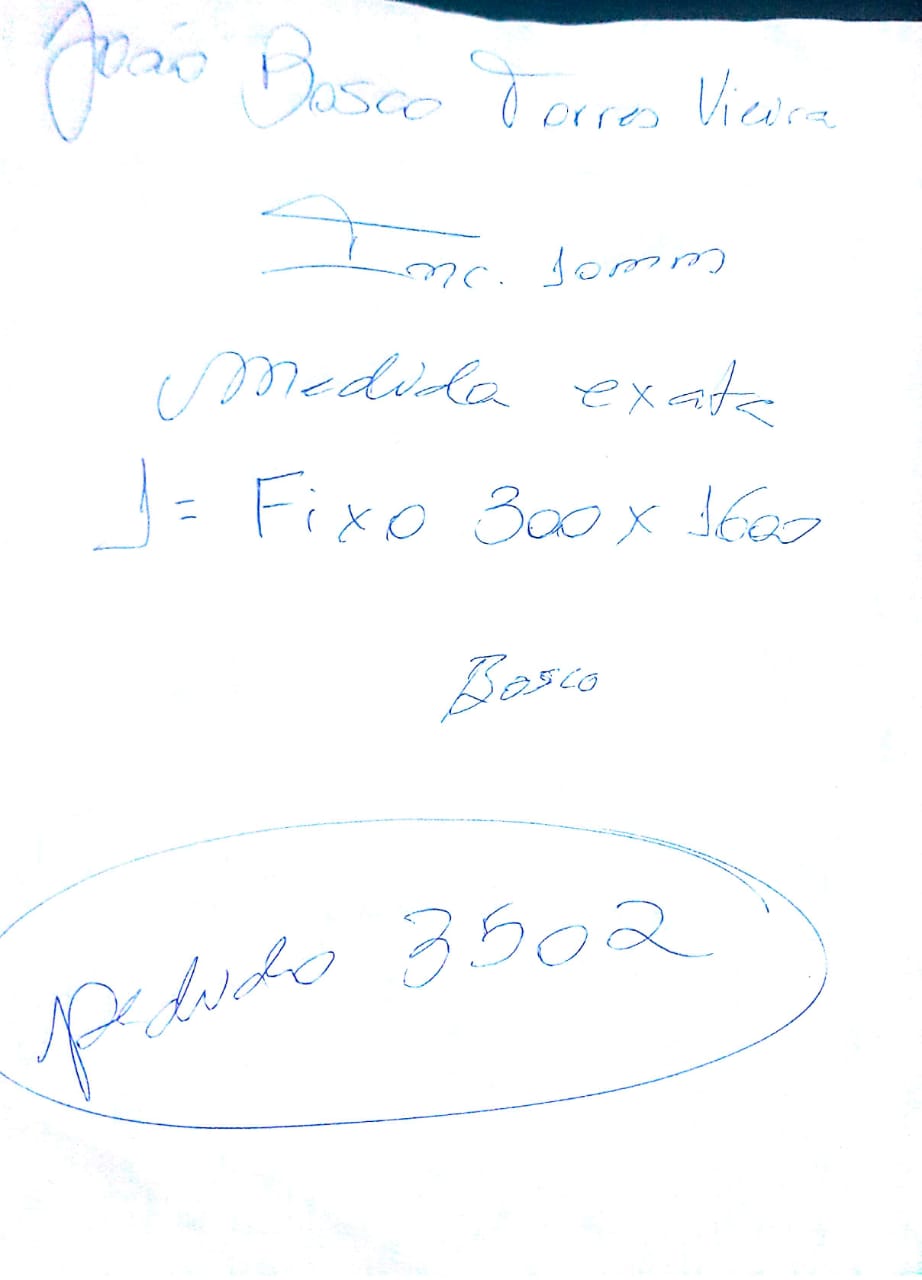 João Bosco Torres Vieira
Inc. 10mm
Medida exata
1= Fixo 300 x 1600
Bosco
pedido 3502